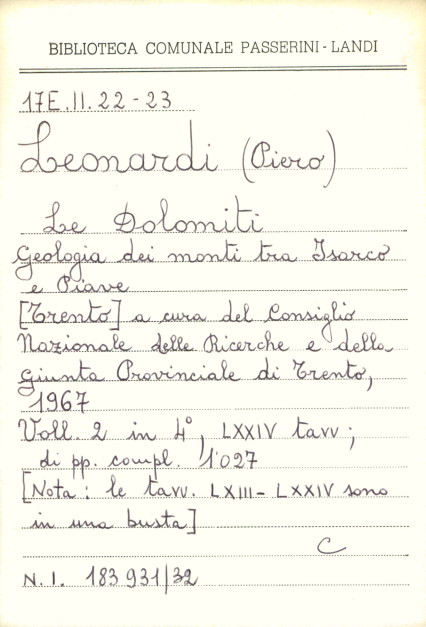 BIBLIOTECA COMUNALE PASSERINI-LANDI
17E.II.22-23
Leonardi (Piero)
Le Dolomiti
Geologia dei monti tra Isarco
e Piave
[Trento] a cura del Consiglio
Nazionale delle Ricerche e della
Giunta Provinciale di Trento,
1967
Voll. 2 in 4°, LXXIV tavv;
di pp. compl. 1'027
[Nota: le tavv. LXIII-LXXIV sono
in una busta]
C
N.I. 183 931/32